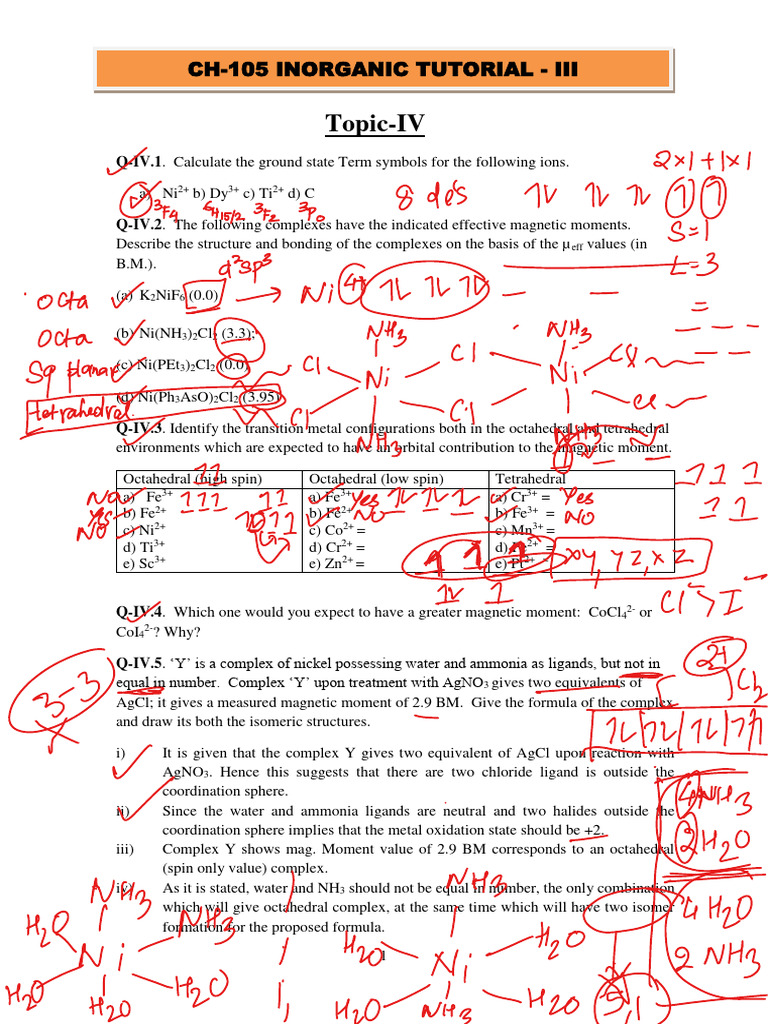 CH-105 INORGANIC TUTORIAL - III
Topic-IV
Q-IV.1. Calculate the ground state Term symbols for the following ions.
2×1+1×1
a) Ni²⁺ b) Dy³⁺ c) Ti²⁺ d) C
8 de's 1L 1L 1L 1 1
³F₄ ⁶H₁₅/₂ ³F₂ ³P₀
S=1
Q-IV.2. The following complexes have the indicated effective magnetic moments.
Describe the structure and bonding of the complexes on the basis of the µeff values (in
B.M.).
d²sp³
L=3
octa (a) K₂NiF₆ (0.0) → Ni 4+ 1L 1L 1L
octa (b) Ni(NH₃)₂Cl₂ (3.3);
NH₃ NH₃
Sq planar (c) Ni(PEt₃)₂Cl₂ (0.0)
Cl Cl Cl
Ni Ni
tetrahedral (d) Ni(Ph₃AsO)₂Cl₂ (3.95)
Cl Cl Cl
Q-IV.3. Identify the transition metal configurations both in the octahedral and tetrahedral
NH₃ NH₃
environments which are expected to have an orbital contribution to the magnetic moment.
Octahedral (high spin) Octahedral (low spin) Tetrahedral
No a) Fe³⁺ a) Fe³⁺ Yes 1L 1L 1 a) Cr³⁺ = Yes
Yes b) Fe²⁺ b) Fe²⁺ NO b) Fe³⁺ = NO
NO c) Ni²⁺ c) Co²⁺ = c) Mn³⁺ =
d) Ti³⁺ d) Cr²⁺ =
xy, yz, xz
e) Sc³⁺ e) Zn²⁺ =
Cl⁻ > I⁻
Q-IV.4. Which one would you expect to have a greater magnetic moment: CoCl₄²⁻ or
CoI₄²⁻? Why?
Q-IV.5. 'Y' is a complex of nickel possessing water and ammonia as ligands, but not in
2+
equal in number. Complex 'Y' upon treatment with AgNO₃ gives two equivalents of
Cl₂
3-3
AgCl; it gives a measured magnetic moment of 2.9 BM. Give the formula of the complex
and draw its both the isomeric structures.
i) It is given that the complex Y gives two equivalent of AgCl upon reaction with
AgNO₃. Hence this suggests that there are two chloride ligand is outside the
coordination sphere.
4NH₃
ii) Since the water and ammonia ligands are neutral and two halides outside the
coordination sphere implies that the metal oxidation state should be +2.
2H₂O
iii) Complex Y shows mag. Moment value of 2.9 BM corresponds to an octahedral
(spin only value) complex.
iv) As it is stated, water and NH₃ should not be equal in number, the only combination
which will give octahedral complex, at the same time which will have two isomer
formation for the proposed formula.
4H₂O
2NH₃
NH₃ NH₃
H₂O NH₃ H₂O H₂O
1
Ni Ni
H₂O H₂O H₂O H₂O H₂O
NH₃
5,1